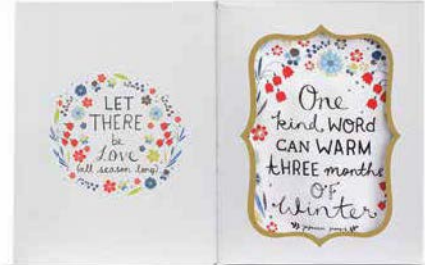 LET
THERE
be
Love
(all season long)
One
kind WORD
CAN WARM
THREE months
OF
Winter
japanese proverb